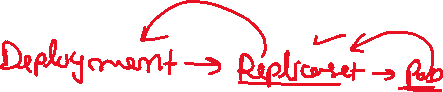 Deployment → Replicaset → Pod